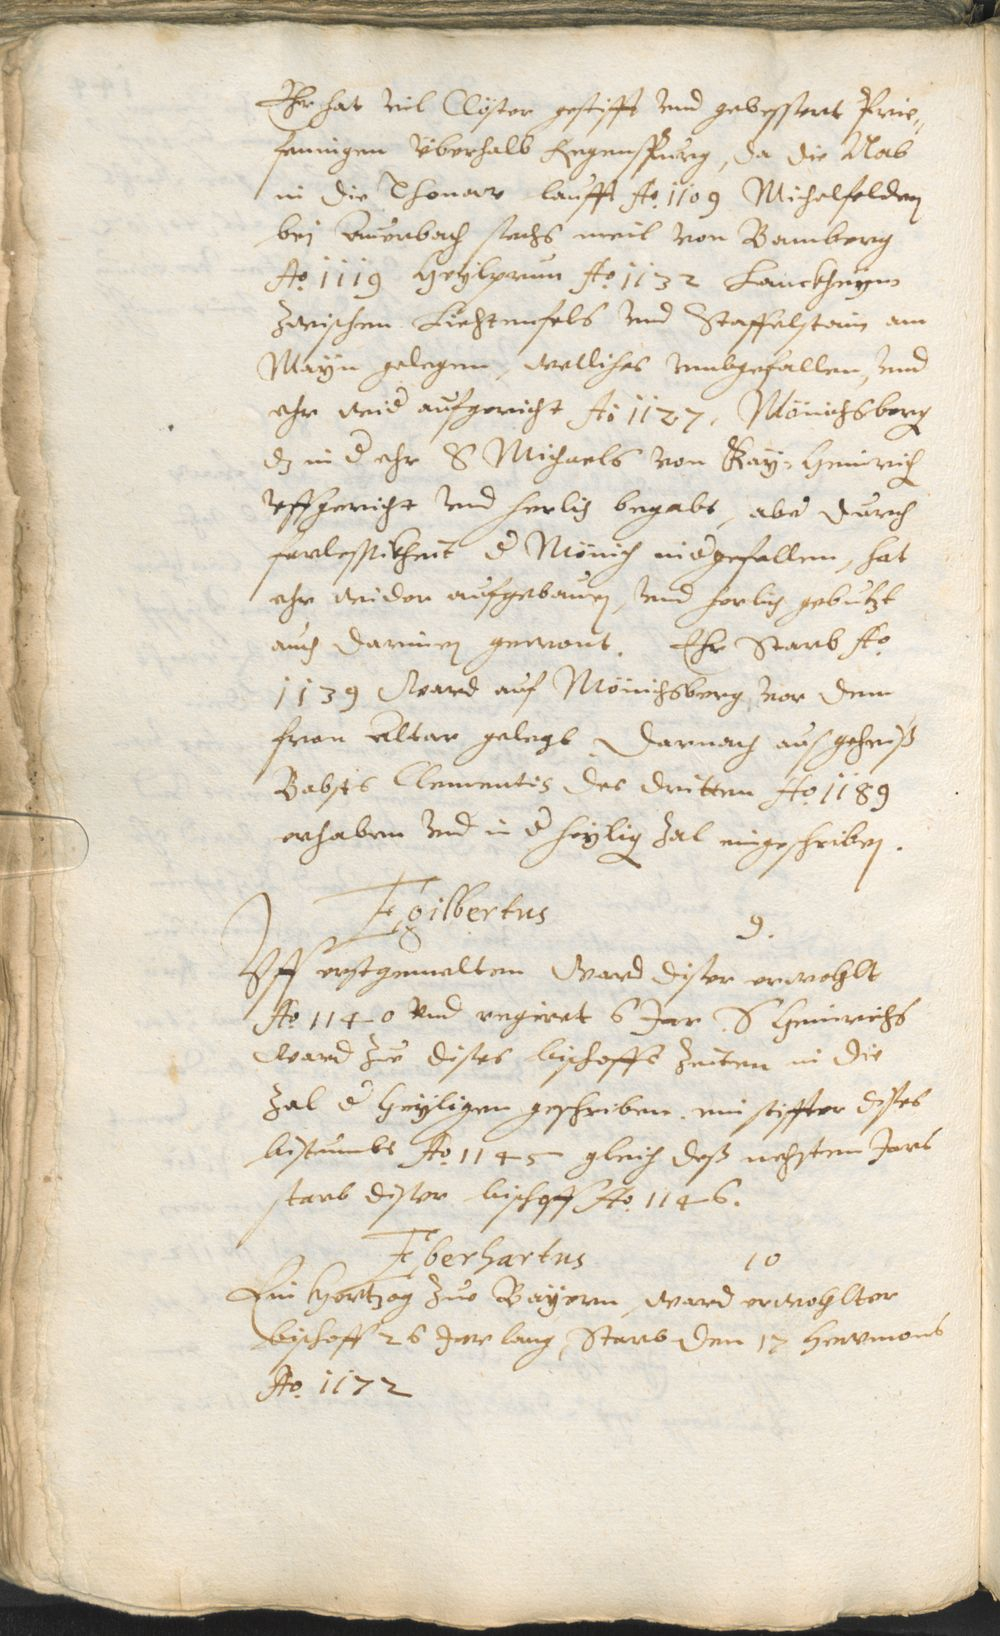 Ehr hat vil Clöster gestifft vnd gebessert Prie„
feningen überhalb Regenspurg, da die Nab
in die Thonaw laufft Ao. 1109 Michelfelden
bei Auerbach sechs meil von Bamberg
Ao. 1119 Heylprun Ao. 1132 Lanckheym
zwischen Liechtenfels vnd Staffelstain am
Mayn gelegen, welliches vmbgefallen, vnd
ehr wid aufgericht Ao 1127, Mönichsberg
dz in d ehr S Michaels von Kay: Heinrich
vffgericht vnd herlich begabt, aber durch
farlessikheit d Mönich nidgefallen, hat
ehr wider aufgebawen, vnd herlich gebutzt
auch darinnen gewont. Ehr Starb Ao
1139 Ward auf Mönichsberg vor dem
fron Altar gelegt Darnach aus geheiß
Babsts Clementis des dritten Ao. 1189
erhaben vnd in d heylig Zal eingeschriben.
Egilbertus 9.
Vff erstgemelten Ward diser erwohlt
Ao 1140 vnd regieret 6 Jar. S Heinrichs
Ward zue dises bischoffs Zeiten in die
Zal d Heyligen geschriben. ein stiffter dises
bistumbs Ao. 1145 gleich deß nehsten Jars
starb diser bischoff Ao. 1146.
Eberhartus 10
Ein Hertzog zue Bayern, ward erwohlter
bischoff 26 Jar lang, Starb den 17 Hewmons
Ao. 1172